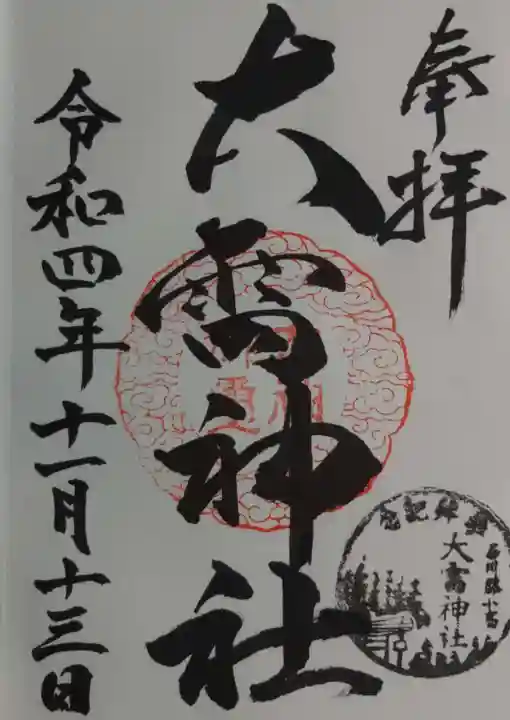 奉拝
大雷神社
令和四年十一月十三日
参拝記念
大雷神社